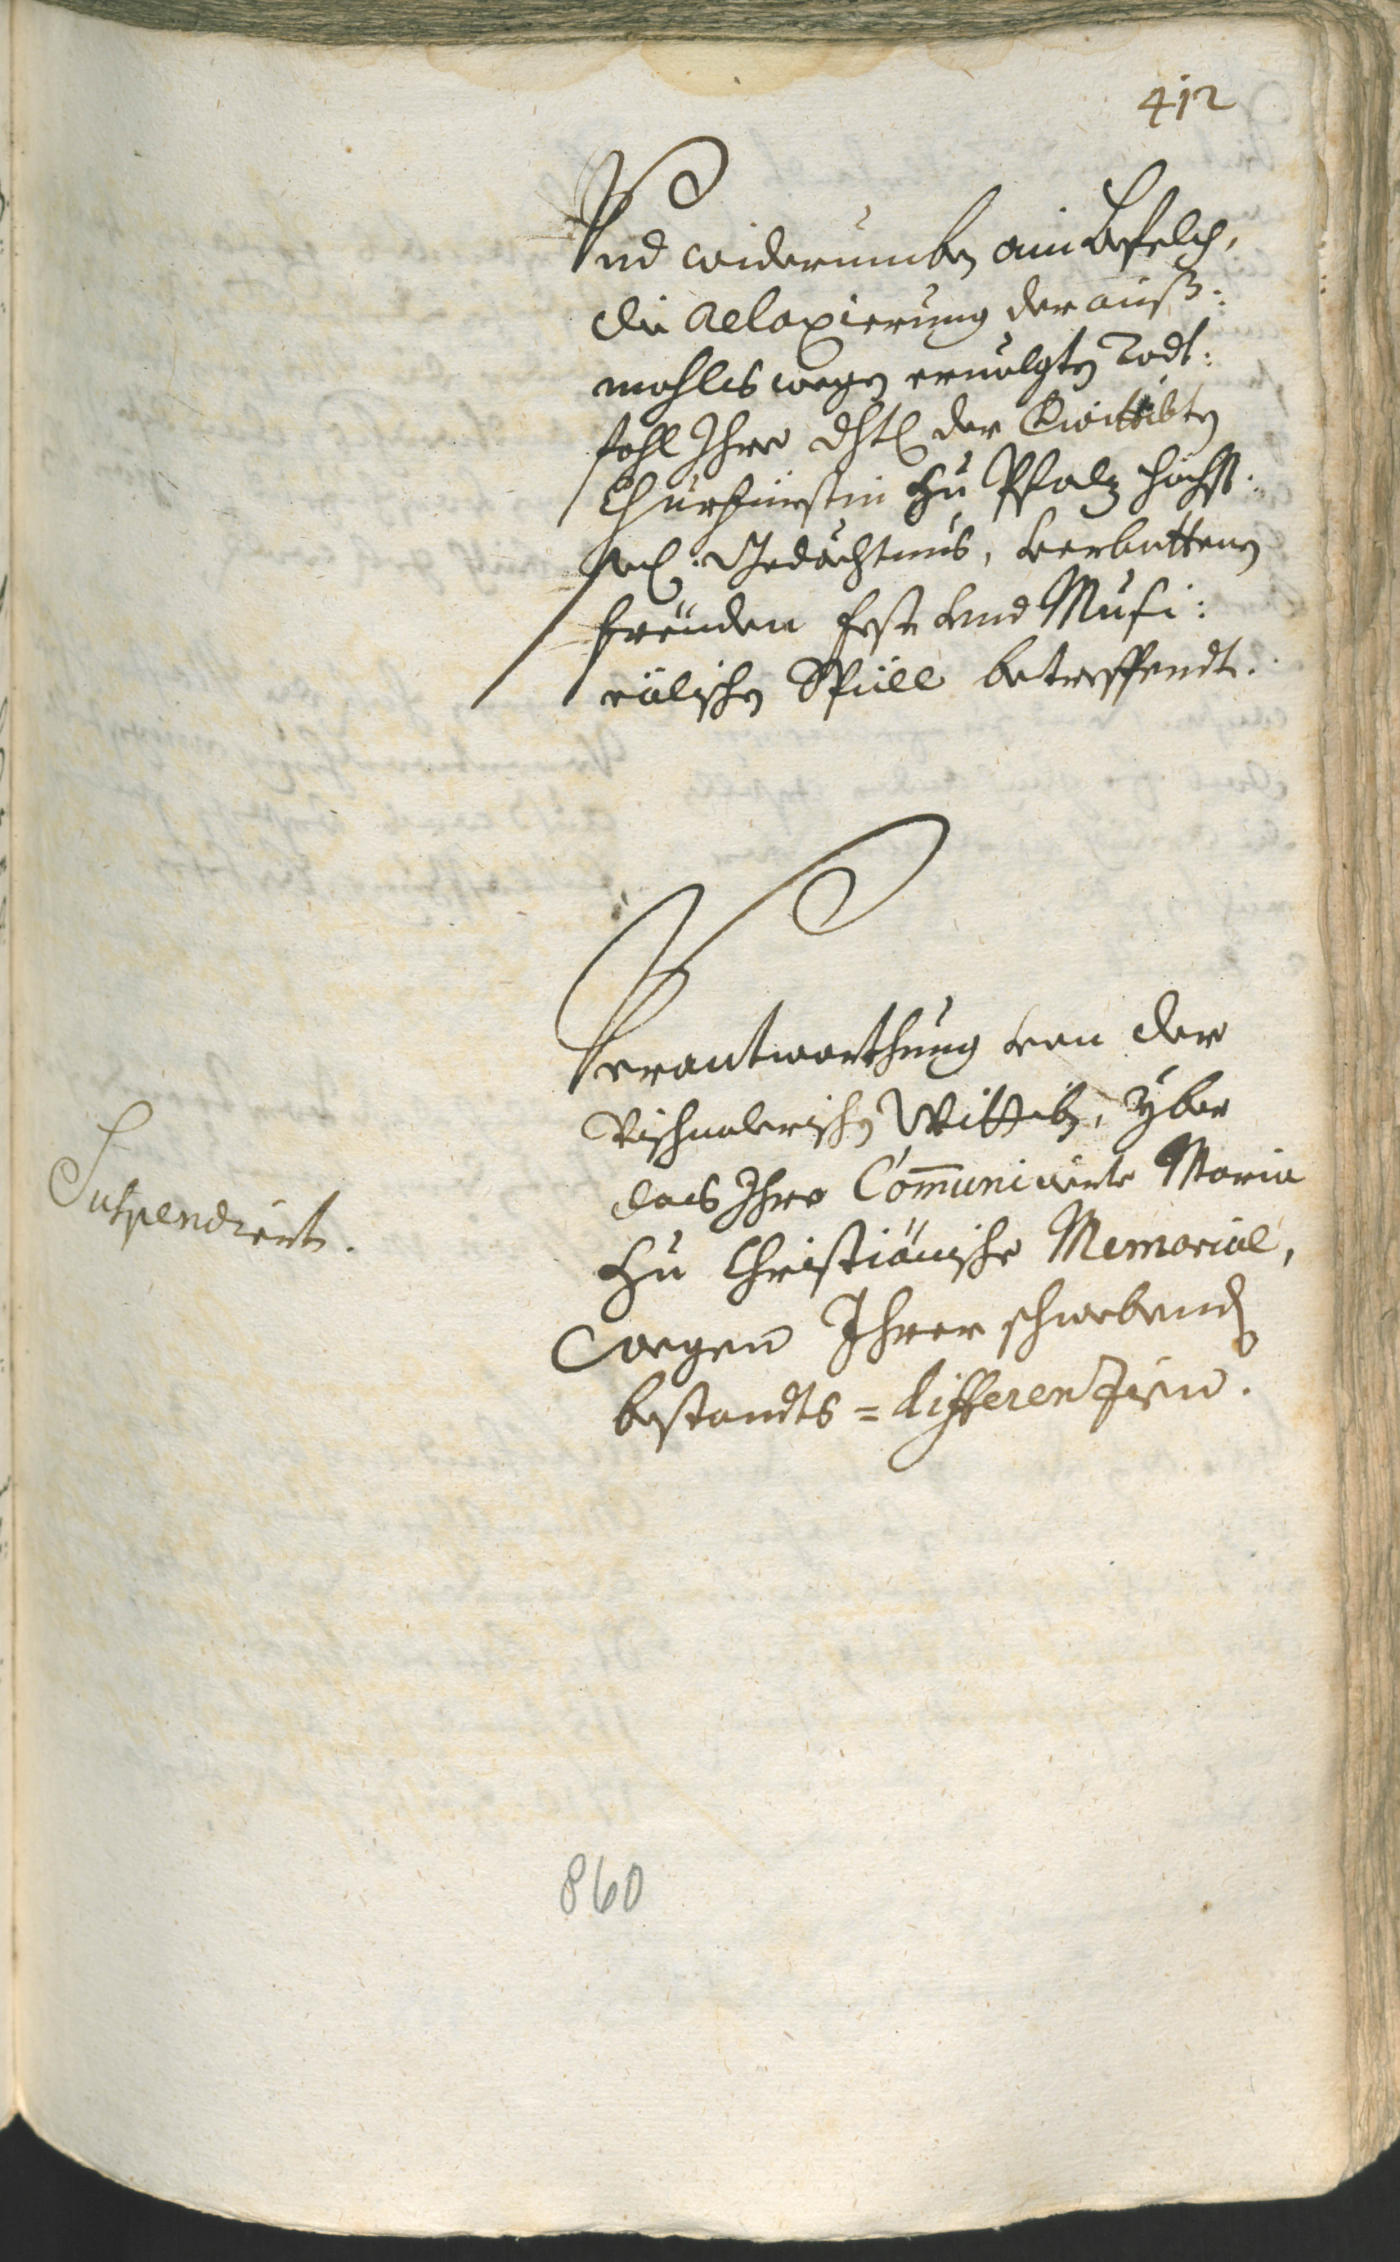 412
Vnd widerumben ain Befelch,
die Relaxierung der auß:
mahls wegen ervolgten Todt:
fahl Ihre dhtl der Verwittibten
Churfürstin zu Pfalz höchst:
seel: Gedächtnus, verbottenen
freüden fest vnd Musi:
calischen Spüll betreffendt.
Verantworthung von der
Wittib, yber
das Ihro Communicierte Maria
Zu Christianische Memorial,
wegen Ihrer schwebenden
bestandts = differenzien.
Suspendiert.
860